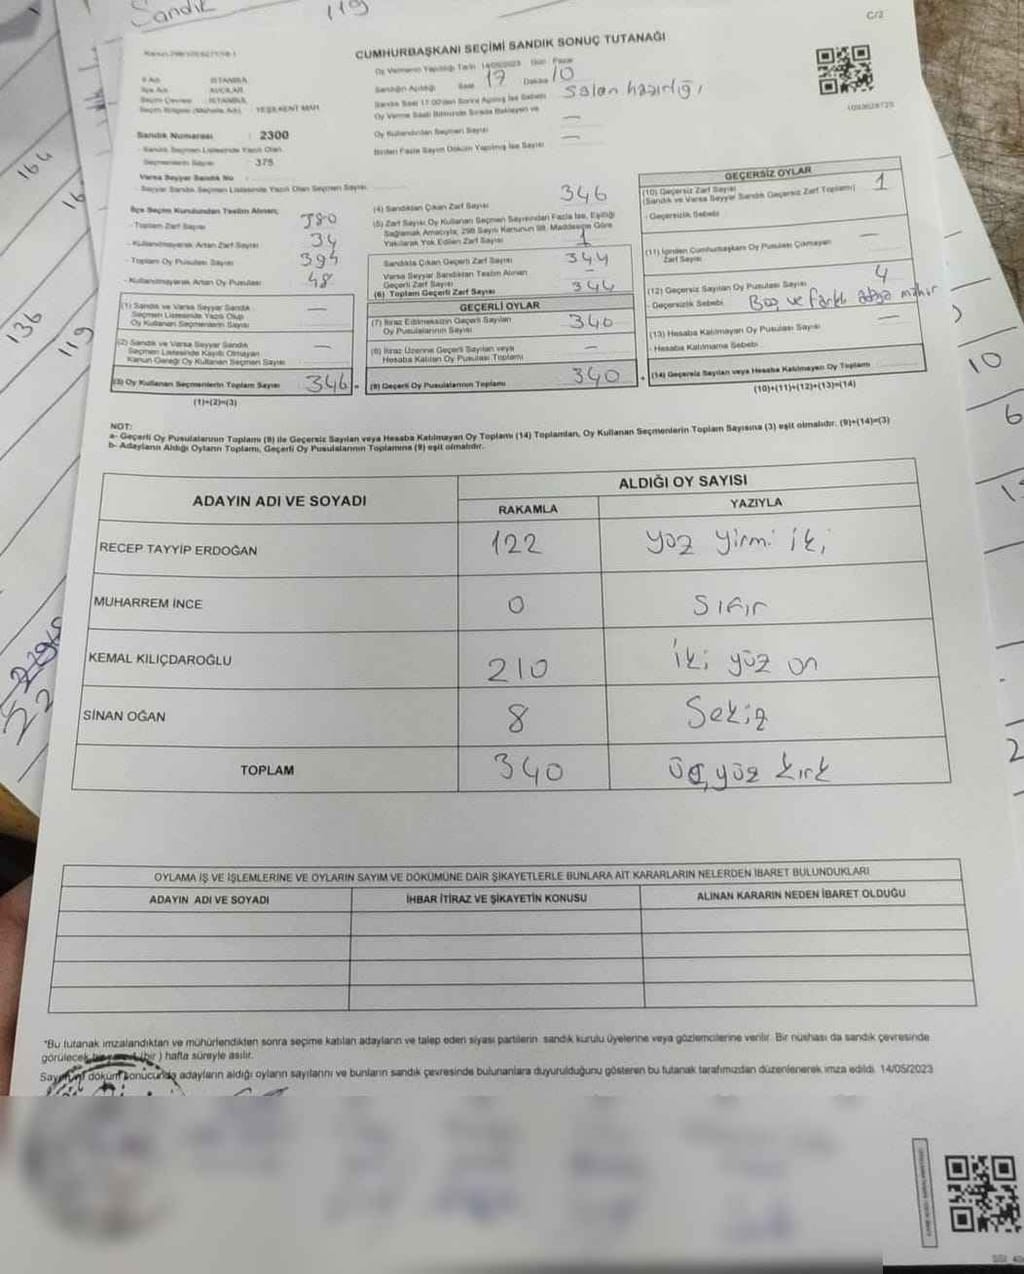 Sandık 119
C/2
CUMHURBAŞKANI SEÇİMİ SANDIK SONUÇ TUTANAĞI
Oy Vermenin Yapıldığı Tarih 14/05/2023 Gün Pazar
İl Adı : İSTANBUL
İlçe Adı : AVCILAR
Seçim Çevresi : İSTANBUL
YEŞİLKENT MAH.
Sandığın Açıldığı Saat 17 Dakika 10
Sandık Saat 17:00'den Sonra Açılmış İse Sebebi Salan hazırlığı
Oy Verme Saati Bitiminde Sırada Bekleyen ve
Oy Kullandırılan Seçmen Sayısı —
Birden Fazla Sayım Döküm Yapılmış İse Sayısı —
Sandık Numarası : 2300
Sandık Seçmen Listesinde Yazılı Olan
Seçmenlerin Sayısı : 375
Varsa Seyyar Sandık No :
Seyyar Sandık Seçmen Listesinde Yazılı Olan Seçmen Sayısı
İlçe Seçim Kurulundan Teslim Alınan;
- Toplam Zarf Sayısı 380
- Kullanılmayarak Artan Zarf Sayısı 34
- Toplam Oy Pusulası Sayısı 394
- Kullanılmayarak Artan Oy Pusulası 48
(1) Sandık ve Varsa Seyyar Sandık
Seçmen Listesinde Yazılı Olup
Oy Kullanan Seçmenlerin Sayısı —
(2) Sandık ve Varsa Seyyar Sandık
Seçmen Listesinde Kayıtlı Olmayan
Kanun Gereği Oy Kullanan Seçmen Sayısı —
(3) Oy Kullanan Seçmenlerin Toplam Sayısı 346
(1)+(2)=(3)
(4) Sandıktan Çıkan Zarf Sayısı 346
(5) Zarf Sayısı Oy Kullanan Seçmen Sayısından Fazla İse, Eşitliği
Sağlamak Amacıyla, 298 Sayılı Kanunun 98. Maddesine Göre
Yakılarak Yok Edilen Zarf Sayısı 1
Sandıkta Çıkan Geçerli Zarf Sayısı 344
Varsa Seyyar Sandıktan Teslim Alınan
Geçerli Zarf Sayısı —
(6) Toplam Geçerli Zarf Sayısı 344
GEÇERLİ OYLAR
(7) İtiraz Edilmeksizin Geçerli Sayılan
Oy Pusulalarının Sayısı 340
(8) İtiraz Üzerine Geçerli Sayılan veya
Hesaba Katılan Oy Pusulası Toplamı —
(9) Geçerli Oy Pusulalarının Toplamı 340
GEÇERSİZ OYLAR
(10) Geçersiz Zarf Sayısı 1
(Sandık ve Varsa Seyyar Sandık Geçersiz Zarf Toplamı)
- Geçersizlik Sebebi
(11) İçinden Cumhurbaşkanı Oy Pusulası Çıkmayan
Zarf Sayısı —
(12) Geçersiz Sayılan Oy Pusulası Sayısı 4
- Geçersizlik Sebebi Boş ve farklı adaya mühür
(13) Hesaba Katılmayan Oy Pusulası Sayısı —
- Hesaba Katılmama Sebebi
(14) Geçersiz Sayılan veya Hesaba Katılmayan Oy Toplamı
(10)+(11)+(12)+(13)=(14)
NOT:
a- Geçerli Oy Pusulalarının Toplamı (9) ile Geçersiz Sayılan veya Hesaba Katılmayan Oy Toplamı (14) Toplamları, Oy Kullanan Seçmenlerin Toplam Sayısına (3) eşit olmalıdır. (9)+(14)=(3)
b- Adayların Aldığı Oyların Toplamı, Geçerli Oy Pusulalarının Toplamına (9) eşit olmalıdır.
ADAYIN ADI VE SOYADI ALDIĞI OY SAYISI
RAKAMLA YAZIYLA
RECEP TAYYİP ERDOĞAN 122 yüz yirmi iki
MUHARREM İNCE 0 Sıfır
KEMAL KILIÇDAROĞLU 210 iki yüz on
SİNAN OĞAN 8 Sekiz
TOPLAM 340 üç yüz kırk
OYLAMA İŞ VE İŞLEMLERİNE VE OYLARIN SAYIM VE DÖKÜMÜNE DAİR ŞİKAYETLERLE BUNLARA AİT KARARLARIN NELERDEN İBARET BULUNDUKLARI
ADAYIN ADI VE SOYADI İHBAR İTİRAZ VE ŞİKAYETİN KONUSU ALINAN KARARIN NEDEN İBARET OLDUĞU
*Bu tutanak imzalandıktan ve mühürlendikten sonra seçime katılan adayların ve talep eden siyasi partilerin sandık kurulu üyelerine veya gözlemcilerine verilir. Bir nüshası da sandık çevresinde
görülecek bir yere (bir) hafta süreyle asılır.
Sayım ve döküm sonucunda adayların aldığı oyların sayılarını ve bunların sandık çevresinde bulunanlara duyurulduğunu gösteren bu tutanak tarafımızdan düzenlenerek imza edildi. 14/05/2023
164
136
119
10
6
2